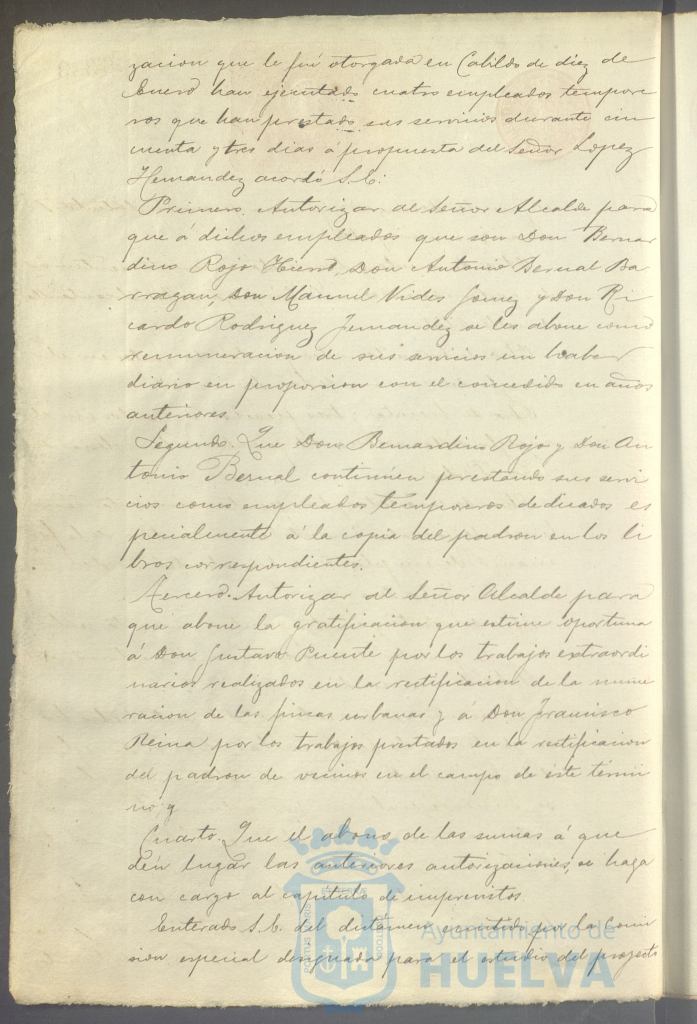 zacion que le fué otorgada en Cabildo de diez de
Enero han ejecutado cuatro empleados tempore
ros que han prestado sus servicios durante cin
cuenta y tres dias á propuesta del Señor Lopez
Hernandez acordó S.E.
Primero. Autorizar al Señor Alcalde para
que á dichos empleados que son Don Bernar
dino Rojo Hierro, Don Antonio Bernal Ba
rragan, Don Manuel Vides Gomez y Don Ri
cardo Rodriguez Fernandez se les abone como
remuneracion de sus servicios un haber
diario en proporcion con el concedido en años
anteriores.
Segundo. Que Don Bernardino Rojo y Don An
tonio Bernal continúen prestando sus servi
cios como empleados temporeros dedicados es
pecialmente á la copia del padron en los li
bros correspondientes.
Tercero. Autorizar al Señor Alcalde para
que abone la gratificacion que estime oportuna
á Don Gustavo Puente por los trabajos extraordi
narios realizados en la rectificacion de la nume
racion de las fincas urbanas y á Don Francisco
Reina por los trabajos prestados en la rectificacion
del padron de vecinos en el campo de este térmi
no y
Cuarto. Que el abono de las sumas á que
den lugar las anteriores autorizaciones, se haga
con cargo al capitulo de imprevistos.
Enterado S.E. del dictamen emitido por la Comi
sion especial designada para el estudio del proyecto
Ayuntamiento de
HUELVA